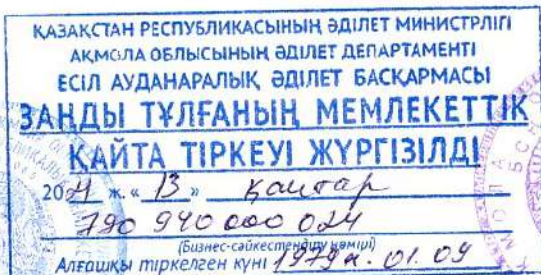 ҚАЗАҚСТАН РЕСПУБЛИКАСЫНЫҢ ӘДІЛЕТ МИНИСТРЛІГІ
АҚМОЛА ОБЛЫСЫНЫҢ ӘДІЛЕТ ДЕПАРТАМЕНТІ
ЕСІЛ АУДАНАРАЛЫҚ ӘДІЛЕТ БАСҚАРМАСЫ
ЗАҢДЫ ТҰЛҒАНЫҢ МЕМЛЕКЕТТІК
ҚАЙТА ТІРКЕУІ ЖҮРГІЗІЛДІ
20 ж. « 13 » қаңтар
790 940 000 024
(Бизнес-сәйкестендіру нөмірі)
Алғашқы тіркелген күні 1979 ж. 01. 09